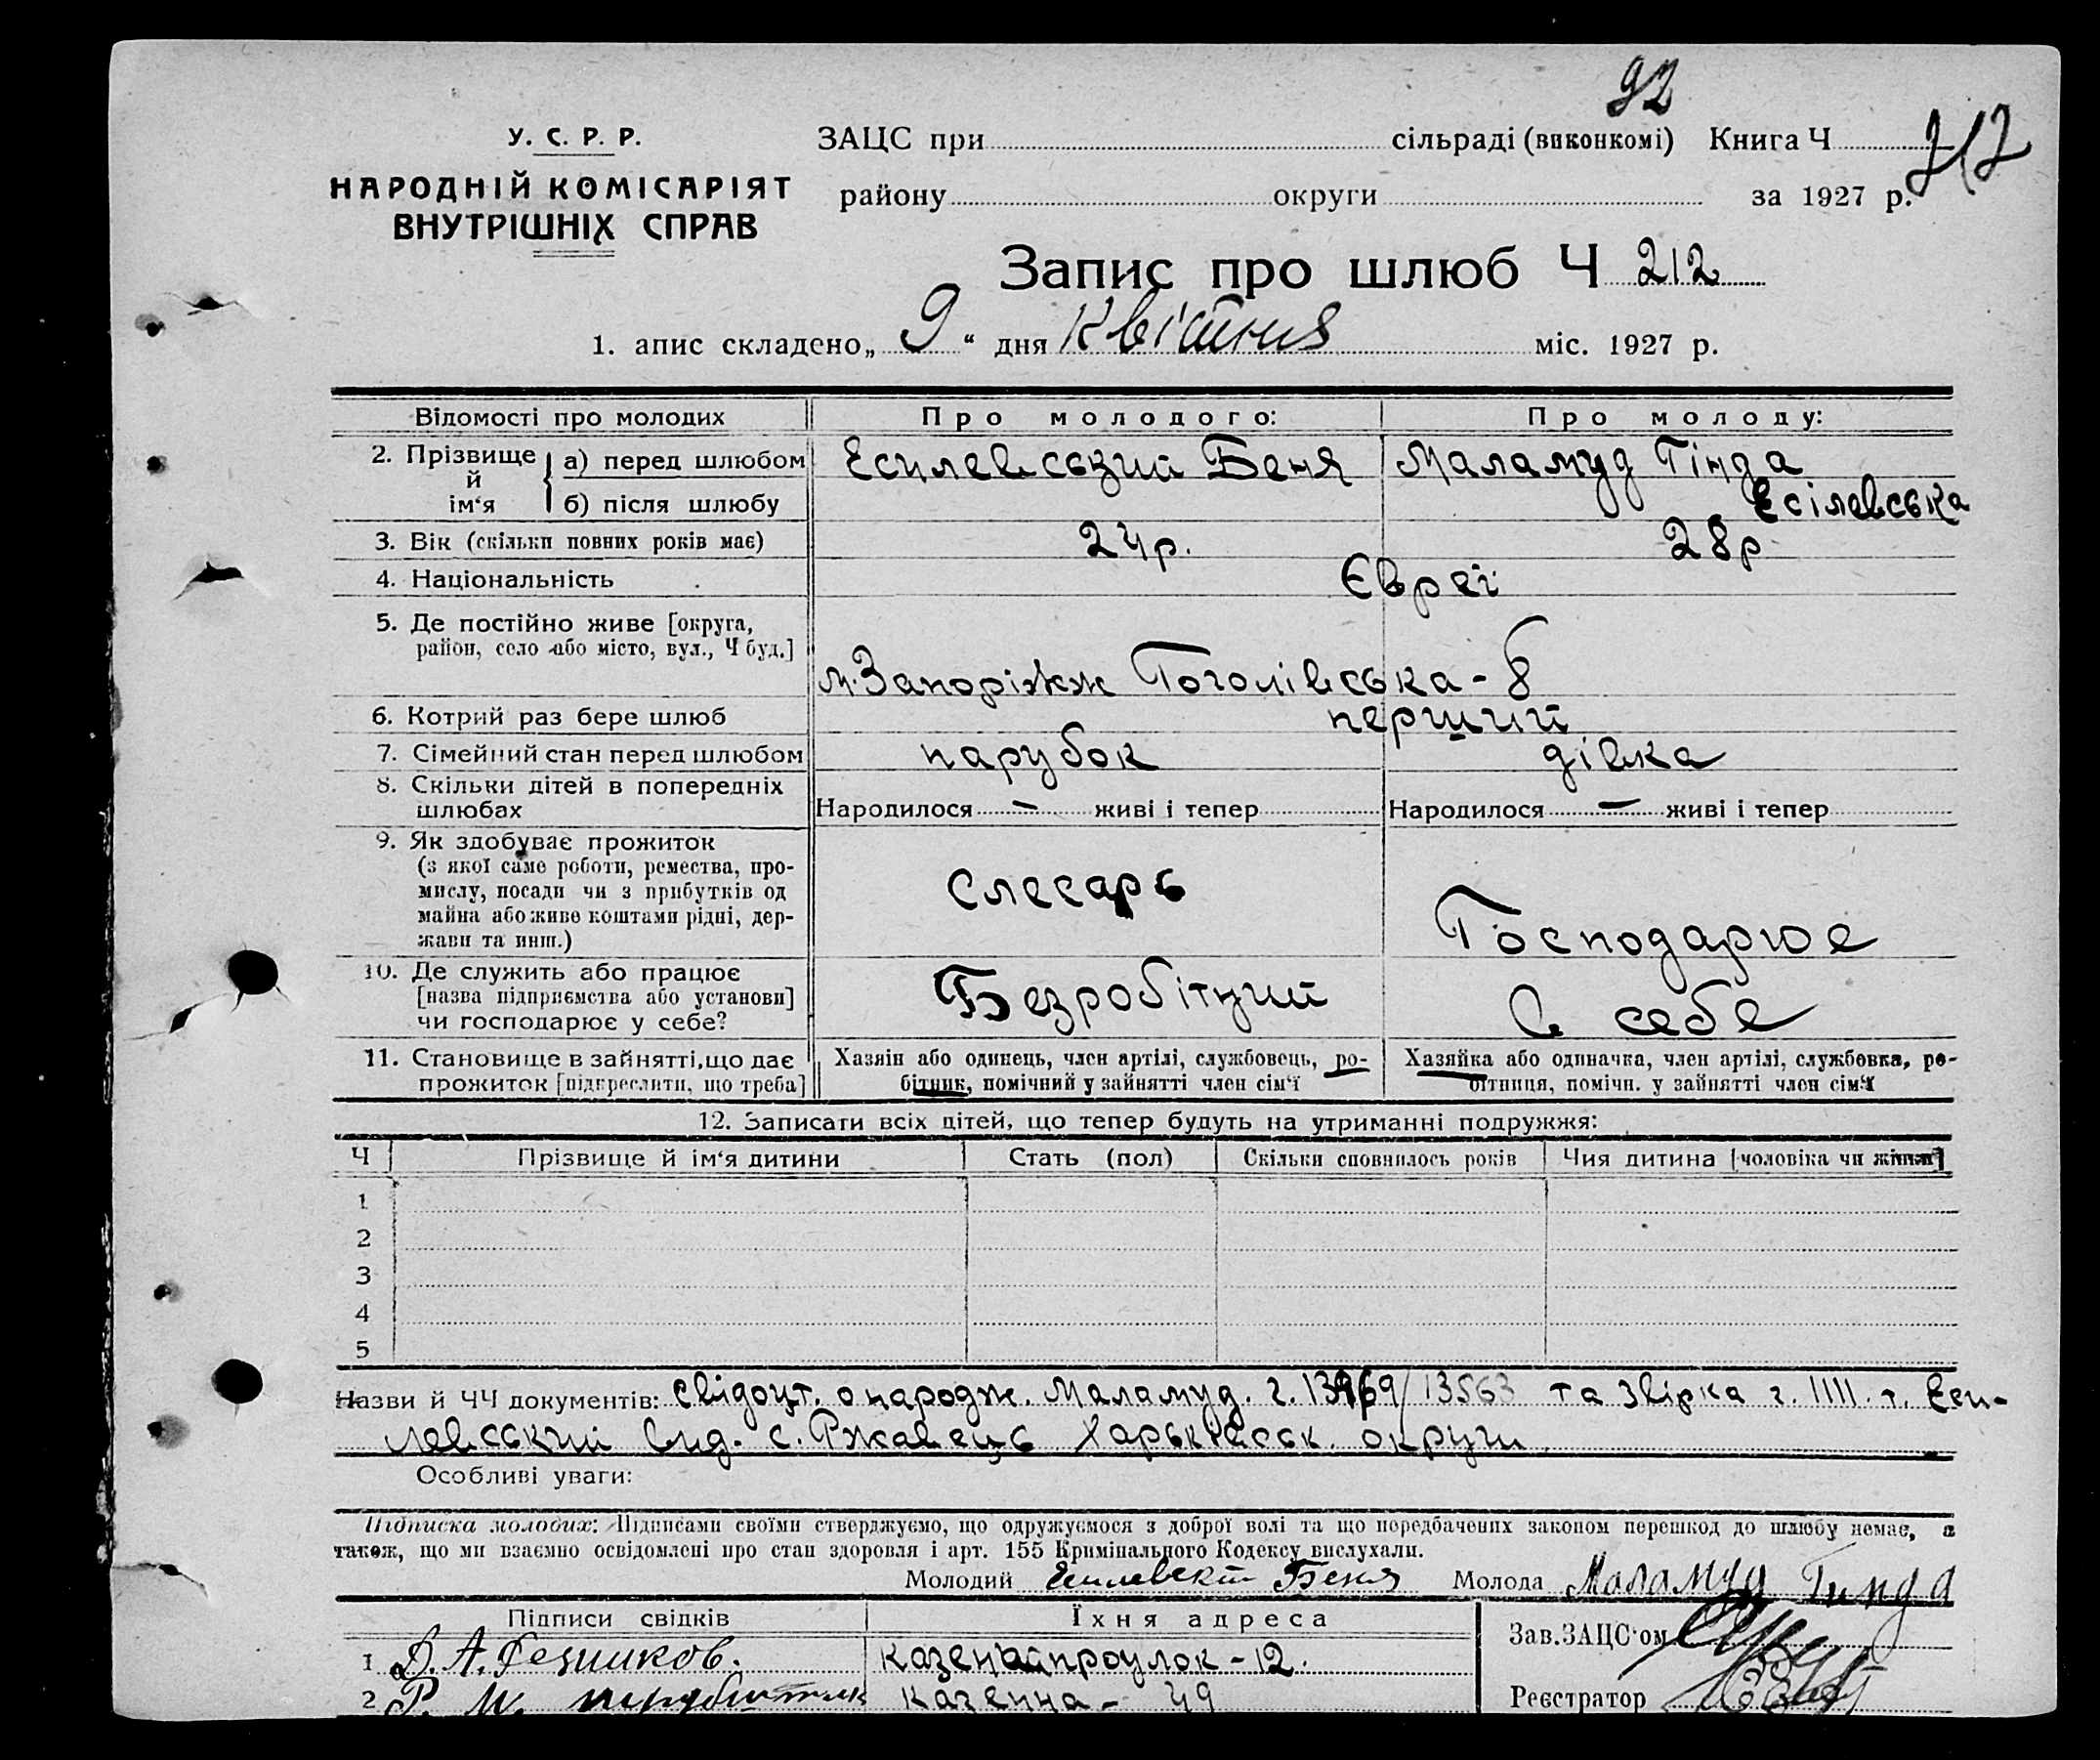 92
У. С. Р. Р.
НАРОДНІЙ КОМІСАРІЯТ
ВНУТРІШНІХ СПРАВ
ЗАЦС при сільраді (виконкомі) Книга Ч 212
району округи за 1927 р.
Запис про шлюб Ч 212
1. апис складено „ 9 “ дня Квітня міс. 1927 р.
Відомості про молодих Про молодого: Про молоду:
2. Прізвище й ім‘я { а) перед шлюбом Есилевський Беня Маламуд Гінда
б) після шлюбу Есілевська
3. Вік (скільки повних років має) 24р. 28р
4. Національність Євреї
5. Де постійно живе [округа,
район, село або місто, вул., Ч буд.]
м. Запоріжж Гоголівська - 8
6. Котрий раз бере шлюб перший
7. Сімейний стан перед шлюбом парубок дівка
8. Скільки дітей в попередніх
шлюбах Народилося — живі і тепер Народилося — живі і тепер
9. Як здобуває прожиток
(з якої саме роботи, ремества, про-
мислу, посади чи з прибутків од
майна або живе коштами рідні, дер-
жави та инш.)
Слесарь Господарює
10. Де служить або працює
[назва підприємства або установи]
чи господарює у себе?
Безробітний в себе
11. Становище в зайнятті, що дає Хазяїн або одинець, член артілі, службовець, ро- Хазяйка або одиначка, член артілі, службовка, ро-
прожиток [підкреслити, що треба] бітник, помічний у зайнятті член сім‘ї бітниця, помічн. у зайнятті член сім‘ї
12. Записати всіх дітей, що тепер будуть на утриманні подружжя:
Ч Прізвище й ім‘я дитини Стать (пол) Скільки сповнилось років Чия дитина [чоловіка чи жінки]
1
2
3
4
5
Назви й ЧЧ документів: свідоцт. о народж. Маламуд. г. /13563 та звірка г. 1111. т. Еси-
левський вид. с. Ржавець Харьківськ. округи
Особливі уваги:
Підписка молодих: Підписами своїми стверджуємо, що одружуємося з доброї волі та що передбачених законом перешкод до шлюбу немає, а
також, що ми взаємно освідомлені про стан здоровля і арт. 155 Кримінального Кодексу вислухали.
Молодий Есилевский Беня Молода Маламуд Гинда
Підписи свідків Їхня адреса
1 Д. А. Резников. Казенна - 12. Зав. ЗАЦС‘ом
2 Р. М. Казенна - 49 Реєстратор